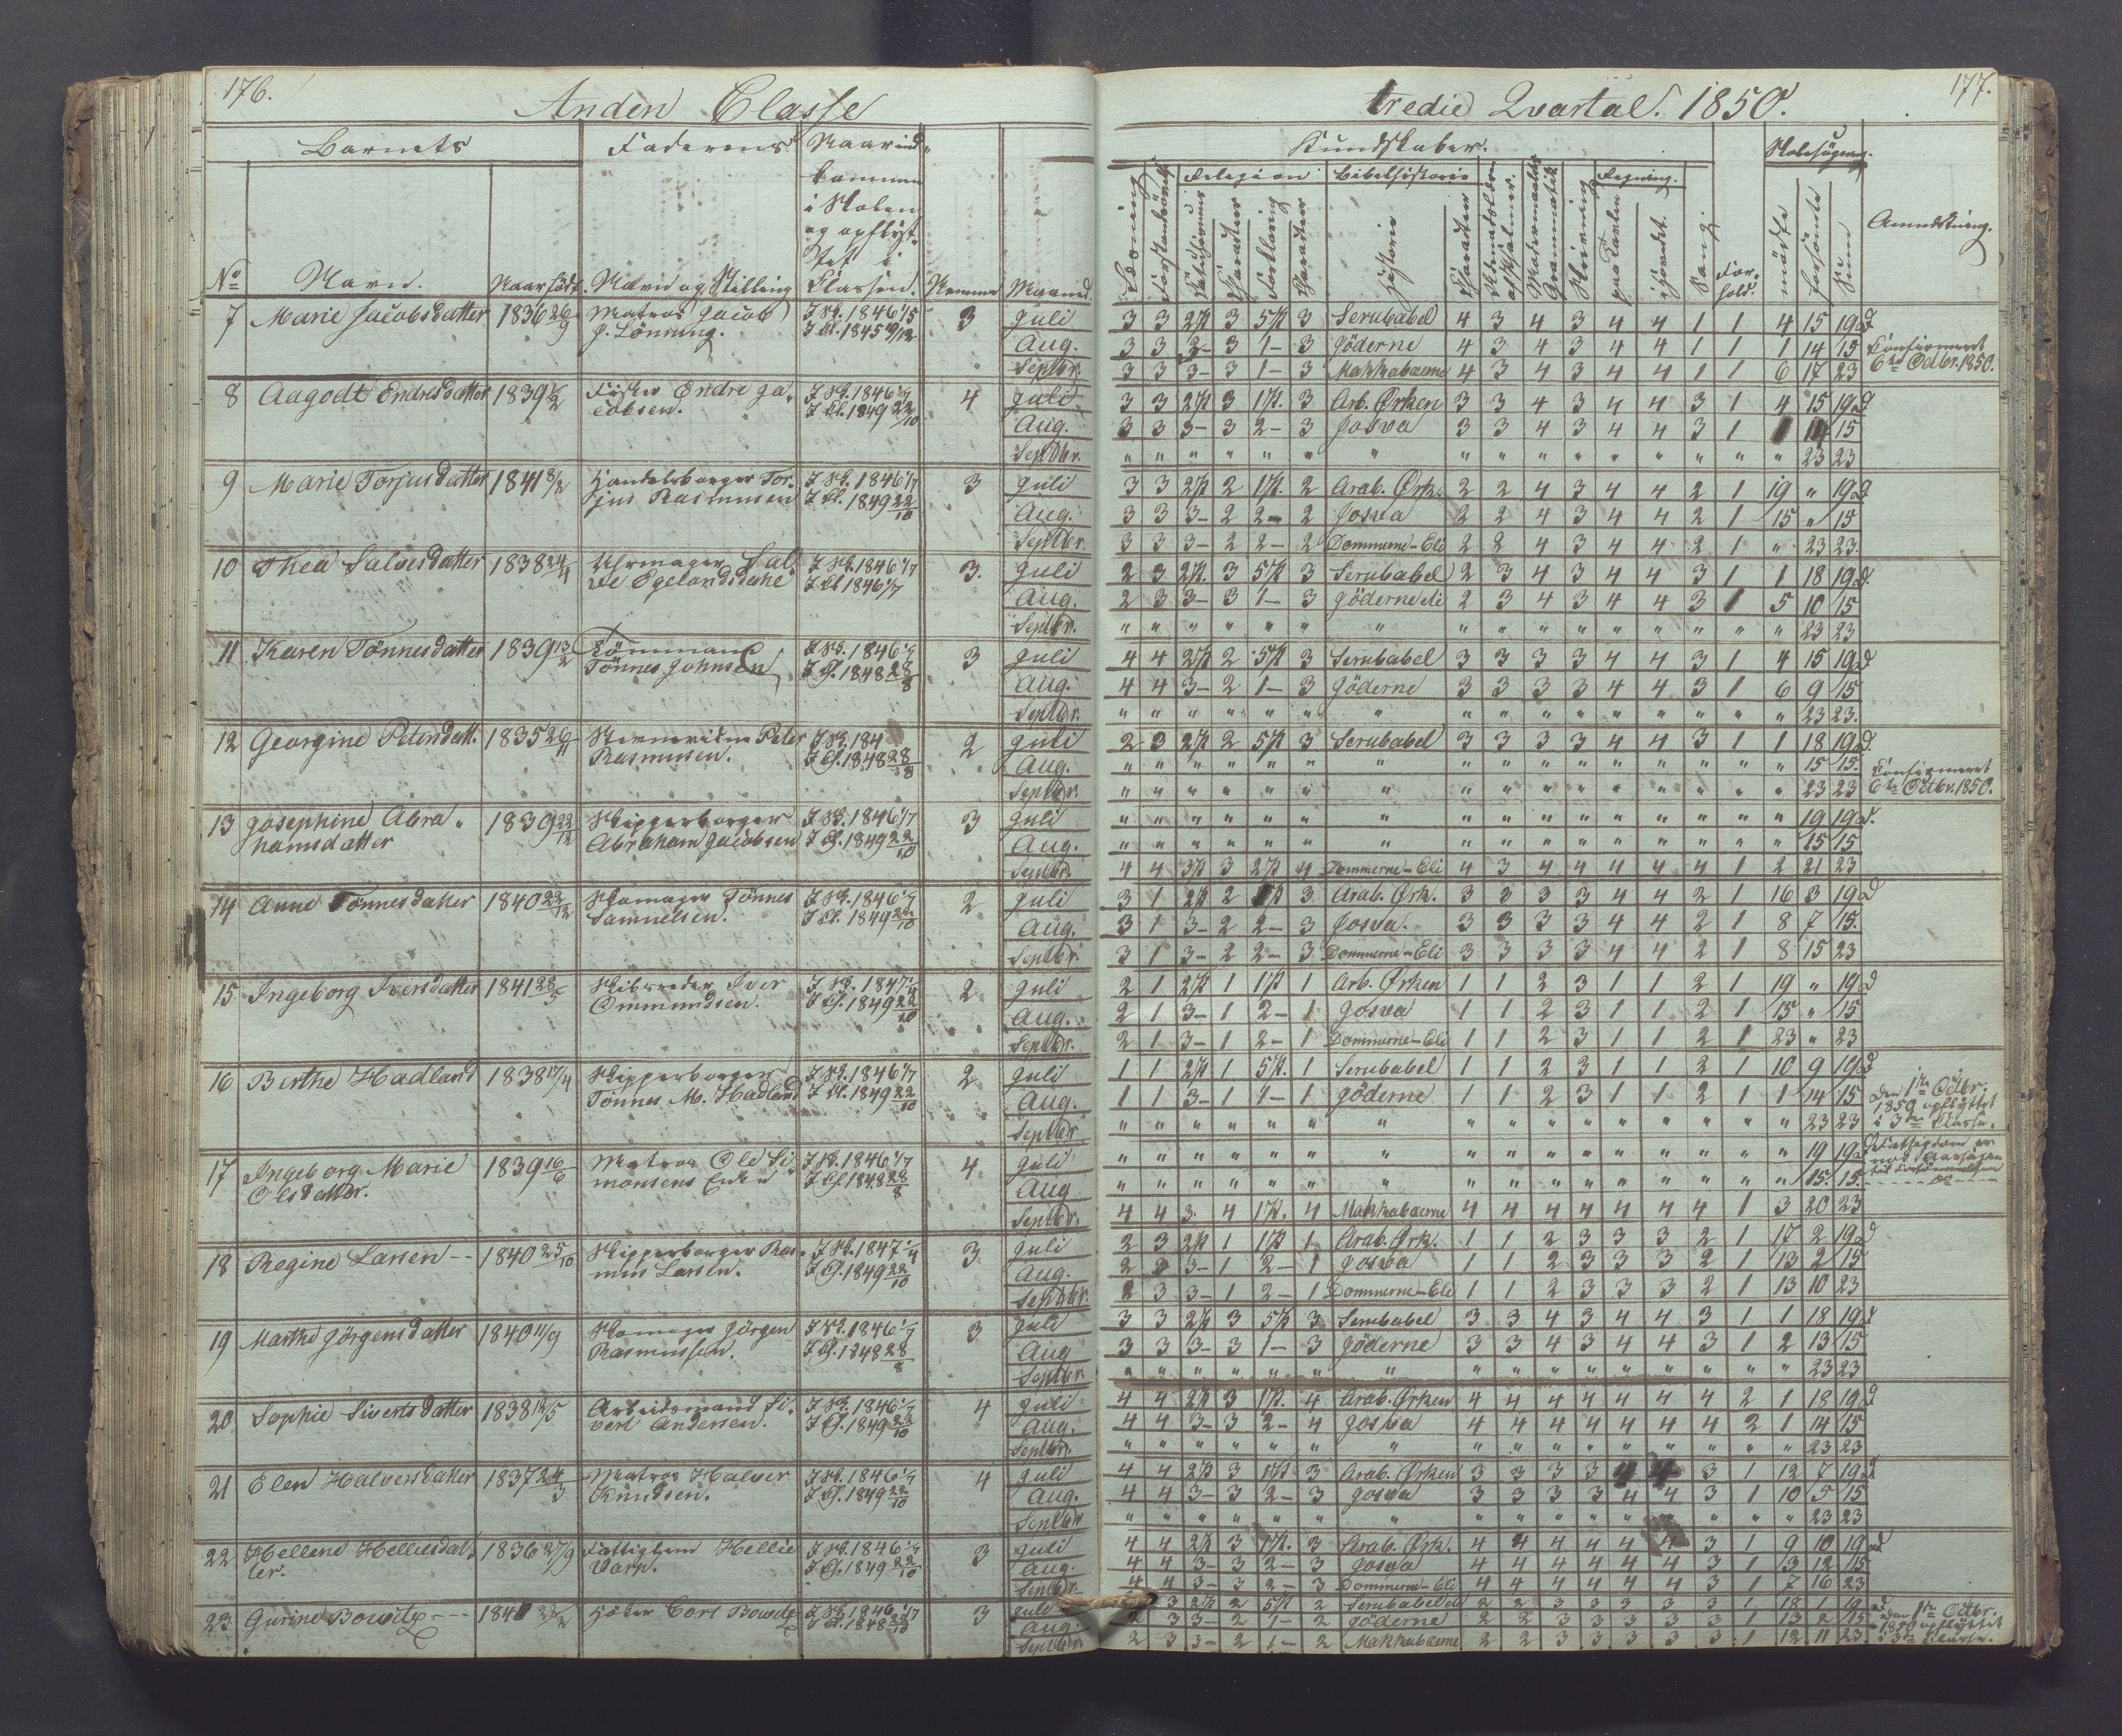 176.
Anden Classe
Barnets Faderens Naar ind-
kommen
i Skolen
og opflyt-
tet i
No Navn. Naar född. Navn og Stilling Classen. Nemme Maaned.
7 Marie Jacobsdatter 1836 26/9 Matros Jacob J Sk. 1846 1/5 3 Juli
J. Lönning. J Cl. 1845 Aug.
Septbr.
8 Aagodt Endresdatter 1839 Fisker Endre Ja- J Sk. 1846 1/7 4 Juli
cobsen. J Cl. 1849 22/10 Aug.
Septbr.
9 Marie Torjusdatter 1841 8/2 Handelsborger Tor- J Sk. 1846 1/7 3 Juli
jus Rasmussen J Cl. 1849 22/10 Aug.
Septbr.
10 Thea Salvesdatter 1838 24/4 Uhrmager Sal- J Sk. 1846 1/7 3. Juli
ve Egelandsdahl J Cl. 1846 1/7 Aug.
Septbr.
11 Karen Tönnesdatter 1839 13/2 Tömmermand J Sk. 1846 1/7 3 Juli
Tönnes Johnsen J Cl. 1848 28/8 Aug.
Septbr.
12 Georgine Petersdatt. 1835 26/11 Peter J Sk. 184 2 Juli
Rasmussen. J Cl. 1848 28/8 Aug.
Septbr.
13 Josephine Abra- 1839 22/12 Skipperborger J Sk. 1846 1/7 3 Juli
hamsdatter Abraham Jacobsen J Cl. 1849 22/10 Aug.
Septbr.
14 Anne Tönnesdatter 1840 22/12 Skomager Tönnes J Sk. 1846 1/7 2 Juli
Samuelsen. J Cl. 1849 22/10 Aug.
Septbr.
15 Ingeborg Iversdatter 1841 28/5 Skibsreder Iver J Sk. 1847 1/4 2 Juli
Ommundsen. J Cl. 1849 22/10 Aug.
Septbr.
16 Birthe Hadland 1838 17/4 Skipperborger J Sk. 1846 1/7 2 Juli
Tönnes M. Hadland J Cl. 1849 22/10 Aug.
Septbr
17 Ingeborg Marie 1839 16/6 Matros Ole Si- J Sk. 1846 1/7 4 Juli
Olsdatter. monsens Enke J Cl. 1848 28/8 Aug
Septbr.
18 Regine Larsen -- 1840 25/10 Skipperborger Ras- J Sk. 1847 1/4 3 Juli
mus Larsen. J Cl. 1849 22/10 Aug.
Septbr.
19 Marthe Jörgensdatter 1840 11/9 Skomager Jörgen J Sk. 1846 1/7 3 Juli
Rasmussen. J Cl. 1848 28/8 Aug
Septbr.
20 Sophie Sivertsdatter 1838 13/5 Arbeidsmand Si- J Sk. 1846 1/7 4 Juli
vert Andersen. J Cl. 1849 22/10 Aug.
Septbr.
21 Elen Halvorsdatter 1837 24/3 Matros Halvor J Sk. 1846 1/7 4 Juli
Knudsen. J Cl. 1849 22/10 Aug.
Septbr
22 Hellene Helliesdat- 1836 27/9 Fattiglem Hellie J Sk. 1846 1/7 3 Juli
ter. Varp. J Cl. 1849 22/10 Aug.
Septbr.
23 Gurine Bowitz --- 184 Höker Carl Bowitz J Sk. 1846 1/7 3 Juli
J Cl. 1848 Aug.
Septbr
177.
tredie Qvartal. 1850.
Kundskaber. Skolesögning.
Religion Bibelhistorie Regning.
Læsning Forstandsövelse Catechismus Charakter Forklaring Charakter Historie Charakter Skrivning paa Tavlen i Hovedet. Sang For-hold. mödte forsömte Sum Anmærkning.
3 3 2 P 3 5 P 3 Serubabel 4 3 4 3 4 4 1 1 4 15 19
3 3 3 - 3 1 - 3 Jöderne 4 3 4 3 4 4 1 1 1 14 15 Confirmeret
3 3 3 - 3 1 - 3 Makkabæerne 4 3 4 3 4 4 1 1 6 17 23 6te Octbr. 1850.
3 3 2 P 3 1 P. 3 Arb. Ørken 3 3 4 3 4 4 3 1 4 15 19
3 3 3 - 3 2 - 3 Josva 3 3 4 3 4 4 3 1 1 14 15
" " " " " " " " " " " " " " " 23 23
3 3 2 P 2 1 P. 2 Arab. Ørk. 2 2 4 3 4 4 2 1 19 " 19
3 3 3 - 2 2 - 2 Josva 2 2 4 3 4 4 2 1 15 " 15
3 3 3 - 2 2 - 2 Dommerne - Eli 2 2 4 3 4 4 2 1 " 23 23.
2 3 2 P. 3 5 P 3 Serubabel 2 3 4 3 4 4 3 1 1 18 19
2 3 3 - 3 1 - 3 Jöderne 2 3 4 3 4 4 3 1 5 10 15
" " " " " " " " " " " " " " " 23 23
4 4 2 P 2 5 P 3 Serubabel 3 3 3 3 4 4 3 1 4 15 19
4 4 3 - 2 1 - 3 Jöderne 3 3 3 3 4 4 3 1 6 9 15
" " " " " " " " " " " " " " " 23 23.
2 3 2 P 2 5 P 3 Serubabel 3 3 3 3 4 4 3 1 1 18 19
" " " " " " " " " " " " " " " 15 15. Confirmeret
" " " " " " " " " " " " " " " 23 23 6te Octbr. 1850.
" " " " " " " " " " " " " " " 19 19
" " " " " " " " " " " " " " " 15 15
4 4 3 P 3 2 P 4 Dommerne - Eli 4 3 4 4 4 4 4 1 2 21 23
3 1 2 P 2 P 3 Arab. Ørk. 3 3 3 3 4 4 2 1 16 3 19
3 1 3 - 2 2 - 3 Josva. 3 3 3 3 4 4 2 1 8 7 15.
3 1 3 - 2 2 - 3 Dommerne - Eli 3 3 3 3 4 4 2 1 8 15 23
2 1 2 P 1 1 P 1 Arb. Ørken 1 1 2 3 1 1 2 1 19 " 19
2 1 3 - 1 2 - 1 Josva 1 1 2 3 1 1 2 1 15 " 15
2 1 3 - 1 2 - 1 Dommerne - Eli 1 1 2 3 1 1 2 1 23 " 23
1 1 2 P 1 5 P. 1 Serubabel 1 1 2 3 1 1 2 1 10 9 19
1 1 3 - 1 1 - 1 Jöderne 1 1 2 3 1 1 2 1 1 14 15 Den 1te Octbr.
1850 opflyttet
" " " " " " " " " " " " " " " 23 23 i 3die Classe.
" " " " " " " " " " " " " " " 19 19 Fattigdom er
nok Aarsagen
" " " " " " " " " " " " " " " 15. 15. til Forsömmelsen
4 4 3. 4 1 P. 4 Makkabæerne 4 4 4 4 4 4 4 1 3 20 23
2 3 2 P 1 1 P 1 Arab. Ørk. 1 1 2 3 3 3 2 1 17 2 19
2 3 3 - 1 2 - 1 Josva 1 1 2 3 3 3 2 1 13 2 15
2 3 3 - 1 2 - 1 Dommerne - Eli 1 1 2 3 3 3 2 1 13 10 23
3 3 2 P 3 5 P 3 Serubabel 3 3 4 3 4 4 3 1 1 18 19
3 3 3 - 3 1 - 3 Jöderne 3 3 4 3 4 4 3 1 2 13 15
" " " " " " " " " " " " " " " 23 23
4 4 2 P 3 1 P. 4 Arab. Ørken 4 4 4 4 4 4 4 2 1 18 19
4 4 3 - 3 2 - 4 Josva 4 4 4 4 4 4 4 2 1 14 15
" " " " " " " " " " " " " " " 23 23
4 4 2 P 3 1 P 3 Arab. Ørken 3 3 3 3 4 4 3 1 12 7 19
4 4 3 - 3 2 - 3 Josva 3 3 3 3 4 4 3 1 10 5 15
" " " " " " " " " " " " " " " 23 23
4 4 2 P 3 1 P. 3 Arab. Ørk. 4 4 4 4 4 4 3 1 9 10 19
4 4 3 - 3 2 - 3 Josva 4 4 4 4 4 4 3 1 3 12 15
4 4 3 - 3 2 - 3 Dommerne - Eli 4 4 4 4 4 4 3 1 7 16 23
3 2 P 2 5 P 2 Serubabel 2 2 3 3 3 3 3 1 18 1 19
2 3 3 - 2 1 - 2 Jöderne 2 2 3 3 3 3 3 1 13 2 15 den 1te Octbr.
1850 opflyttet
2 3 3 - 2 1 - 2 Makkabæerne 2 2 3 3 3 3 3 1 12 11 23 i 3die Classe.